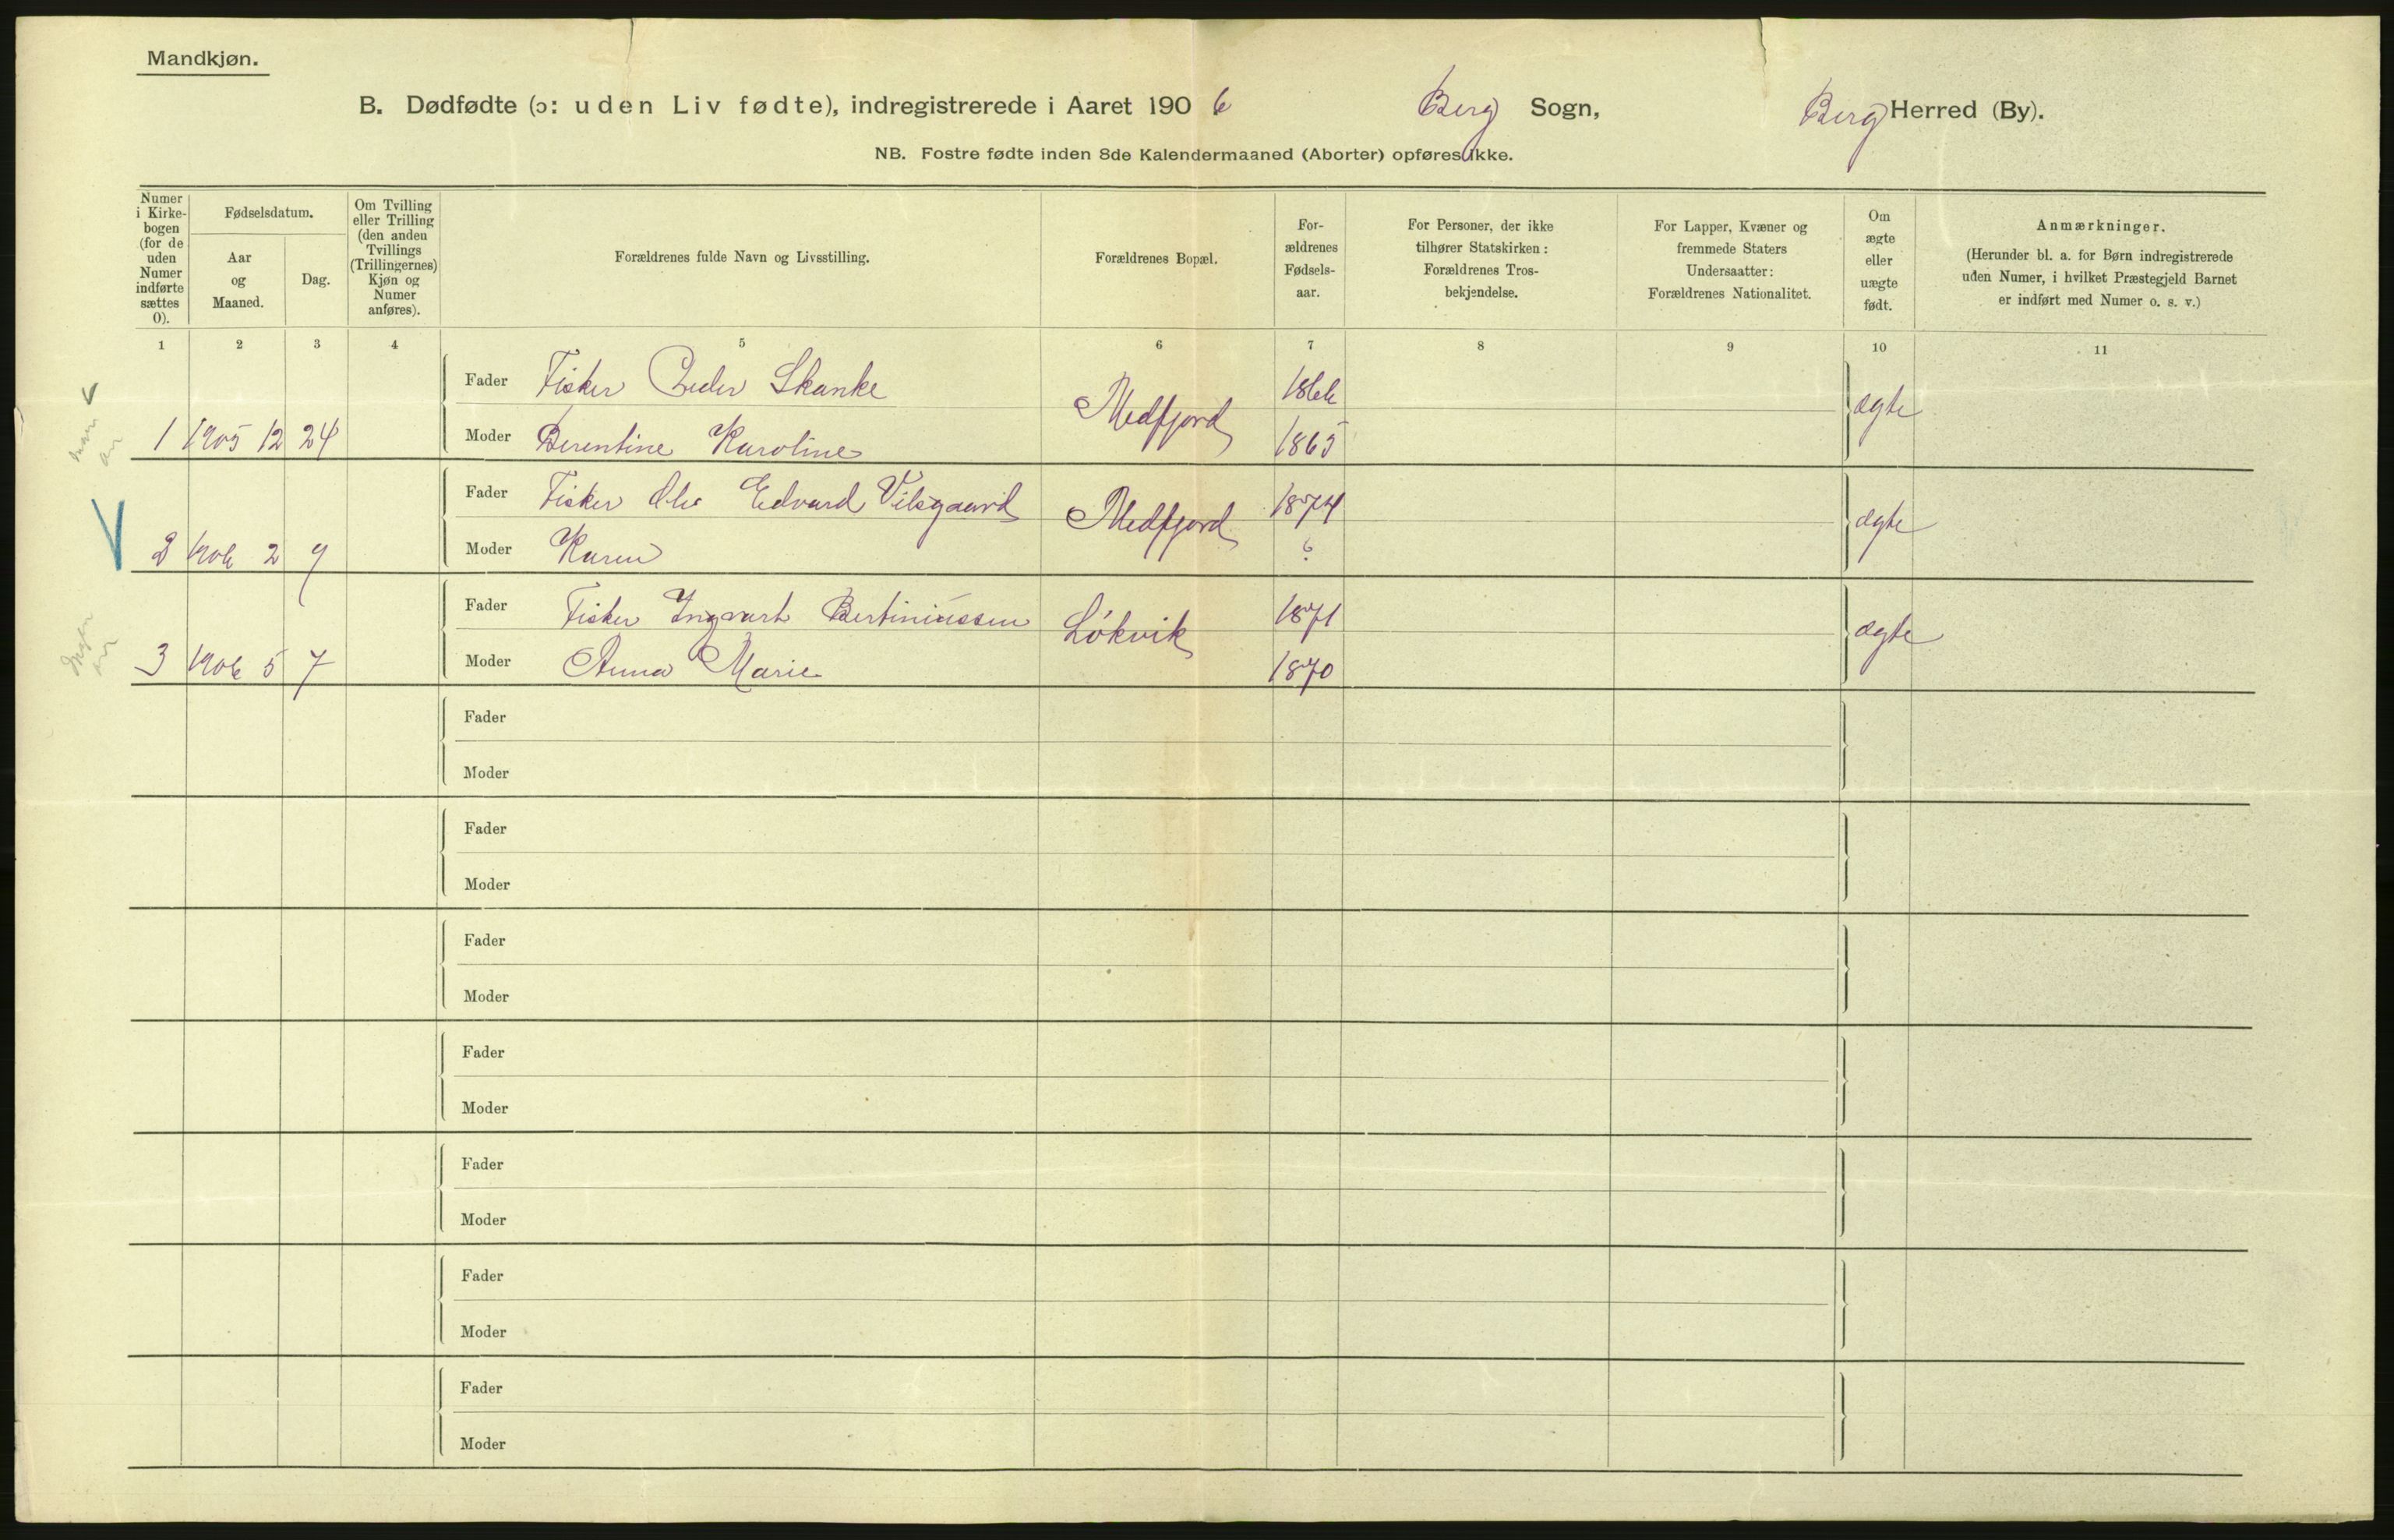 Mandkjøn.
B. Dødfødte (ɔ: uden Liv fødte), indregistrerede i Aaret 1906 Berg Sogn, Berg Herred (By).
NB. Fostre fødte inden 8de Kalendermaaned (Aborter) opføres ikke.
Numer i Kirke-
bogen
(for de
uden
Numer
indførte
sættes
0).
Fødselsdatum.
Aar
og
Maaned.
Dag.
Om Tvilling
eller Trilling
(den anden
Tvillings
(Trillingernes)
Kjøn og
Numer
anføres).
Forældrenes fulde Navn og Livsstilling.
Forældrenes Bopæl.
For-
ældrenes
Fødsels-
aar.
For Personer, der ikke
tilhører Statskirken:
Forældrenes Tros-
bekjendelse.
For Lapper, Kvæner og
fremmede Staters
Undersaatter:
Forældrenes Nationalitet.
Om
ægte
eller
uægte
født.
Anmærkninger.
(Herunder bl. a. for Børn indregistrerede
uden Numer, i hvilket Præstegjeld Barnet
er indført med Numer o. s. v.)
1 2 3 4 5 6 7 8 9 10 11
Fader Fisker Peder Skanke Medfjord 1866 ægte
1 1905 12 24 Moder Berentine Karoline 1865
Fader Fisker Ole Edvard Vilsgaard Medfjord 1874 ægte
2 1906 2 9 Moder Karen ?
Fader Fisker Ingvart Bertiniussen Løkvik 1871 ægte
3 1906 5 7 Moder Anna Marie 1870
Fader
Moder
Fader
Moder
Fader
Moder
Fader
Moder
Fader
Moder
Fader
Moder
Fader
Moder